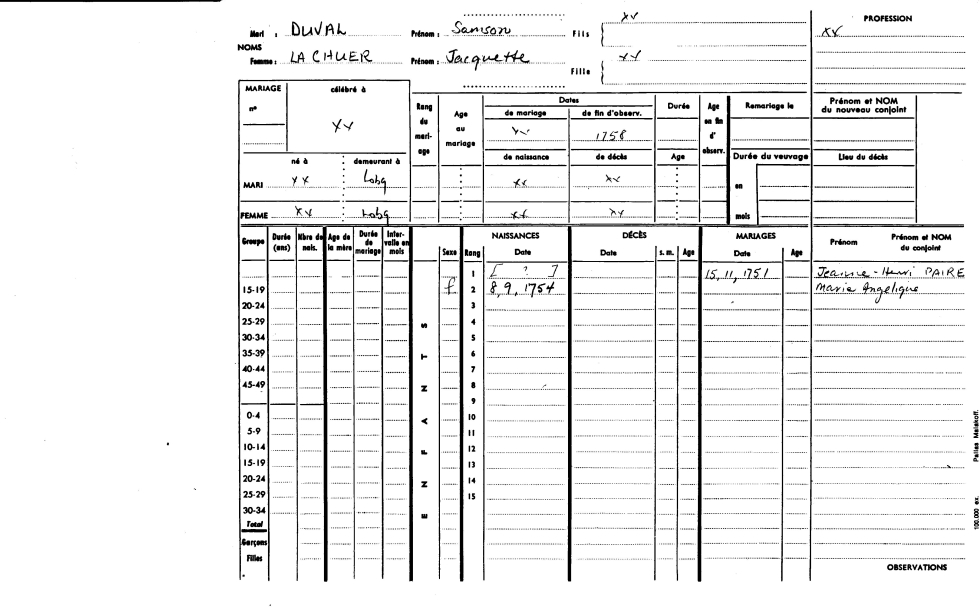 Mari : DUVAL Prénom : Samson Fils { xx PROFESSION
xx
NOMS
Femme : LA CHUER Prénom : Jacquette Fille { xx
MARIAGE célébré à Rang du mari- age Age au mariage Dates Durée Age en fin d' observ. Remariage le Prénom et NOM du nouveau conjoint
n° de mariage de fin d'observ.
xx xx 1758
né à demeurant à de naissance de décès Age Durée du veuvage Lieu du décès
MARI xx Lobq xx xx en
FEMME xx Lobq xx xx mois
Groupe Durée (ans) Nbre de nais. Age de la mère Durée de mariage Inter- valle en mois NAISSANCES DÉCÈS MARIAGES Prénom Prénom et NOM du conjoint
Sexe Rang Date Date s. m. Age Date Age
1 [ ? ] 15, 11, 1751 Jeanne - Henri PAIRE
15-19 f 2 8, 9, 1754 Marie Angelique
20-24 3
25-29 4
30-34 5
35-39 6
40-44 7
45-49 8
9
0-4 10
5-9 11
10-14 12
15-19 13
20-24 14
25-29 15
30-34
Total
Garçons
Filles
ENFANTS
OBSERVATIONS
100.000 ex. Pallas Malakoff.